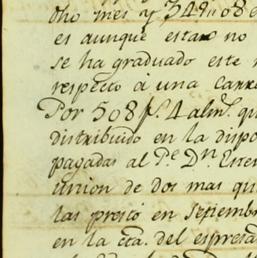 otro mes y 349"08
es aunque estan no
se ha graduado este
respecto á una carre
Por 508 p.s 4 al m.s qu
distribuido en la dispo
pagadas al P.e D.n
union de dos mas qu
las prestó en septiemb
en la cta. del espresa